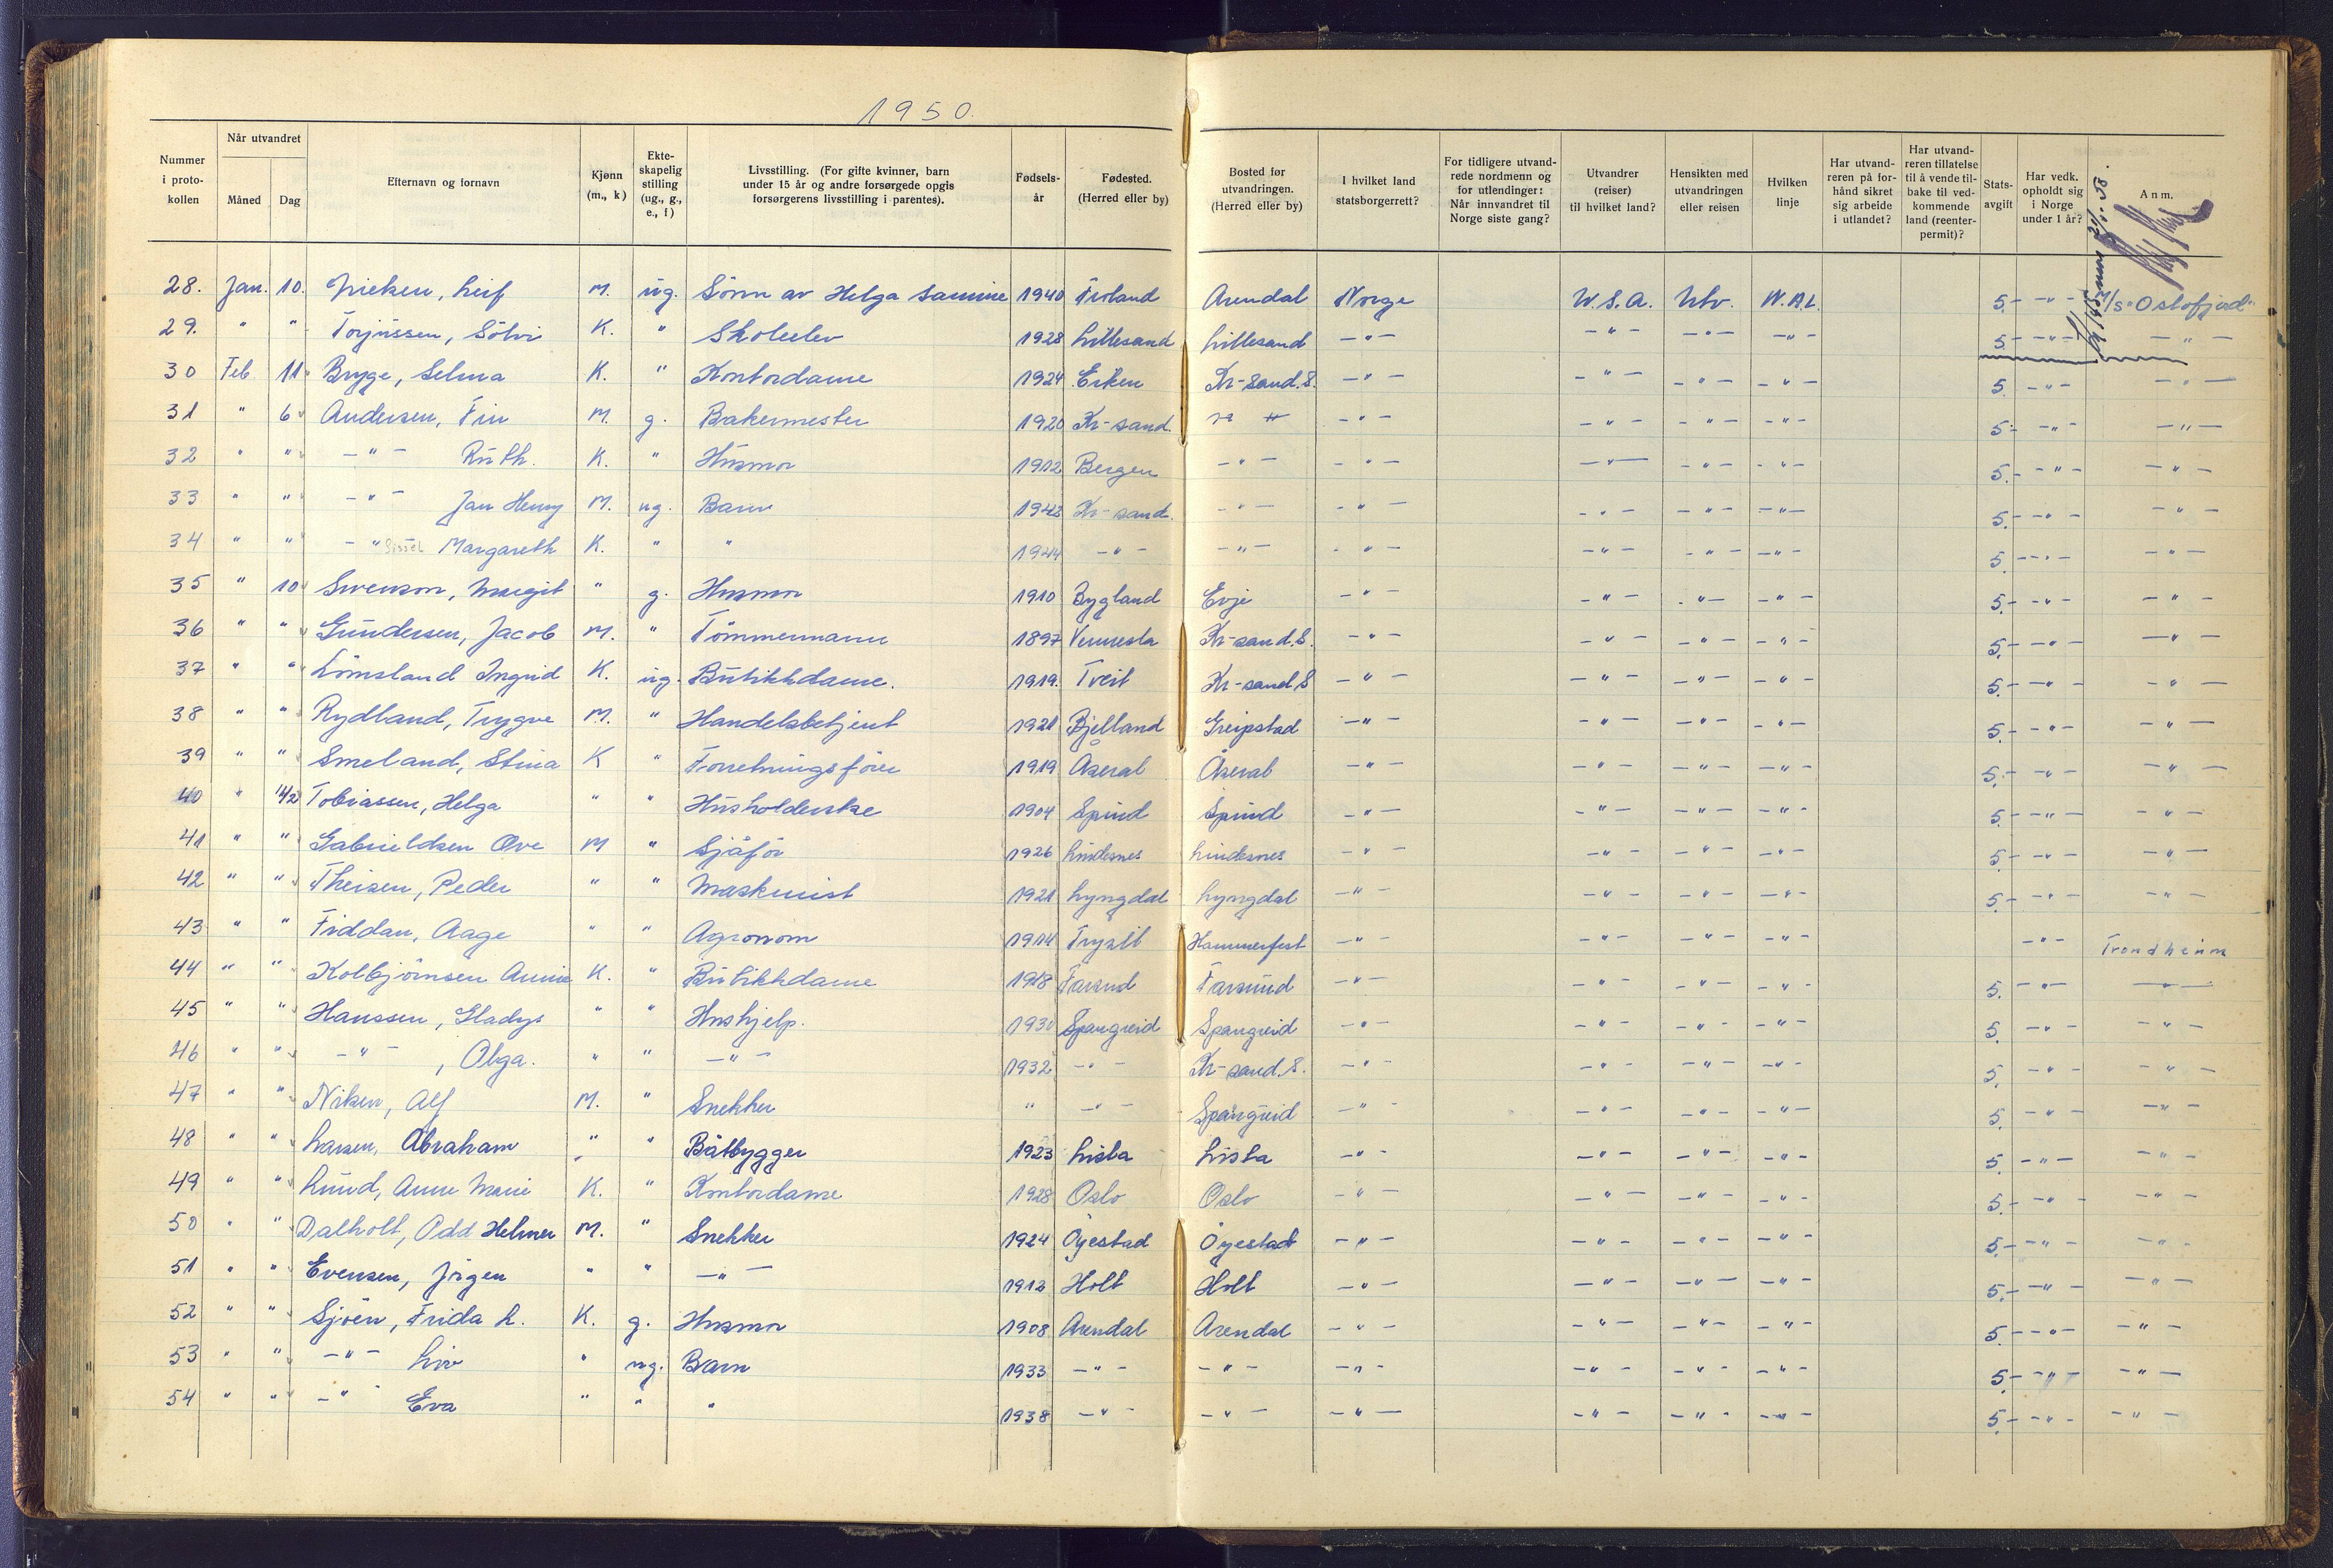 1950.
Nummer i protokollen | Når utvandret Måned Dag | Efternavn og fornavn | Kjønn (m., k) | Ekteskapelig stilling (ug., g., e., f) | Livsstilling. (For gifte kvinner, barn under 15 år og andre forsørgede opgis forsørgerens livsstilling i parentes). | Fødselsår | Fødested. (Herred eller by) | Bosted før utvandringen. (Herred eller by) | I hvilket land statsborgerrett? | For tidligere utvandrede nordmenn og for utlendinger: Når innvandret til Norge siste gang? | Utvandrer (reiser) til hvilket land? | Hensikten med utvandringen eller reisen | Hvilken linje | Har utvandreren på forhånd sikret sig arbeide i utlandet? | Har utvandreren tillatelse til å vende tilbake til vedkommende land (reenterpermit)? | Statsavgift | Har vedk. opholdt sig i Norge under 1 år? | Anm.
28. Jan. 10. Leif M. ug. Sønn av Helga Samine 1940 Froland Arendal Norge U.S.A. Utv. N.A.L. 5.- -"- M/S "Oslofjord"
29. " " Torjussen, Sölvi K. " Skoleelev 1928 Lillesand Lillesand -"- -"- -"- -"- 5.- -"- -"-
30 Feb. 11 Bryge, Selma K. " Kontordame 1924 Eiken Kr-sand.S. -"- -"- -"- -"- 5. -"- -"-
31 " 6 Andersen, Fin M. g. Bakermester 1920 Kr-sand. " " -"- -"- -"- -"- 5.- -"- -"-
32 " " -"- Ruth. K. " Husmor 1912 Bergen -"- -"- -"- -"- -"- 5.- -"- -"-
33 " " -"- Jan Henry M. ug. Barn 1943 Kr-sand. -"- -"- -"- -"- -"- 5.- -"- -"-
34 " " -"- Sissel Margareth K. " " 1944 -"- -"- -"- -"- -"- -"- 5.- -"- -"-
35 " 10 Swenson, Margit " g. Husmor 1910 Bygland Evje -"- -"- -"- -"- 5.- -"- -"-
36 " " Gundersen, Jacob M. " Tömmermann 1897 Vennesla Kr-sand.S. -"- -"- -"- -"- 5.- -"- -"-
37 " " Lömsland Ingrid K. ug. Butikkdame. 1919. Tveit Kr-sand S -"- -"- -"- -"- 5.- -"- -"-
38 " " Rydland, Trygve M. " Handelsbetjent 1921 Bjelland Greipstad -"- -"- -"- -"- 5.- -"- -"-
39 " " Smeland, Stina K " Forretningsförer 1919 Åseral Åseral -"- -"- -"- -"- 5.- -"- -"-
40 " 14/2 Tobiassen, Helga " " Husholderske 1904 Spind Spind -"- -"- -"- -"- 5.- -"- -"-
41 " " Gabrieldsen Ove M " Sjåför 1926 Lindesnes Lindesnes -"- -"- -"- -"- 5.- -"- -"-
42 " " Theisen, Peder " " Maskinist 1921 Lyngdal Lyngdal -"- -"- -"- -"- 5.- -"- -"-
43 " " Fiddan, Aage " " Agronom 1914 Trysil Hammerfest -"- -"- -"- -"- -"- Trondheim
44 " " Kolbjörnsen Annie K. " Butikkdame 1918 Farsund Farsund -"- -"- -"- -"- 5. -"- -"-
45 " " Hanssen, Gladys " " Hushjelp. 1930 Spangreid Spangreid -"- -"- -"- -"- 5. -"- -"-
46 " " -"- , Olga. " " -"- 1932 -"- Kr-sand.S. -"- -"- -"- -"- 5. -"- -"-
47 " " Nilsen, Alf M. " Snekker " -"- Spangreid -"- -"- -"- -"- 5. -"- -"-
48 " " Larsen, Abraham " " Båtbygger 1923 Lista Lista -"- -"- -"- -"- 5. -"- -"-
49 " " Lund, Anne Marie K. " Kontordame 1928 Oslo Oslo -"- -"- -"- -"- 5.- -"- -"-
50 " " Dalholt, Odd Helmer M. " Snekker 1924 Öyestad Öyestad -"- -"- -"- -"- 5.- -"- -"-
51 " " Evensen, Jörgen " " -"- 1912 Holt Holt -"- -"- -"- -"- 5.- -"- -"-
52 " " Sjöen, Frida L. K. g. Husmor 1908 Arendal Arendal -"- -"- -"- -"- 5.- -"- -"-
53 " " -"- Liv " ug. Barn 1933 -"- -"- -"- -"- -"- -"- 5.- -"- -"-
54 " " -"- Eva " " " 1938 -"- -"- -"- -"- -"- -"- 5.- -"- -"-